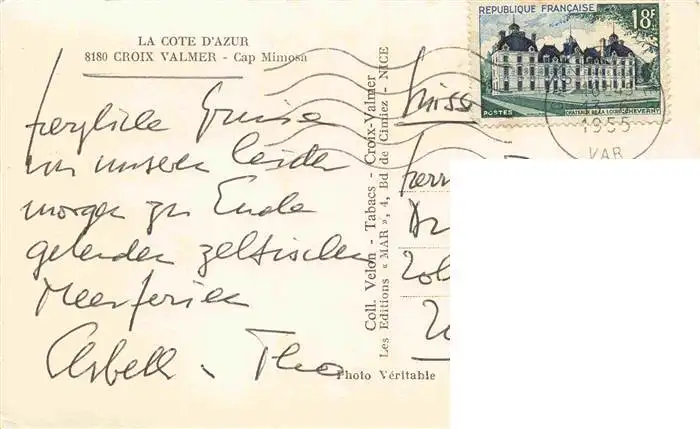 LA COTE D'AZUR
8180 CROIX VALMER - Cap Mimosa
herzliche Grüsse
von unseren leider
morgen zu Ende
gehenden zeltischen
Meerferien
Coll. Velon - Tabacs - Croix-Valmer
Les Editions « MAR », 4, Bd. de Cimiez - NICE
Photo Véritable
REPUBLIQUE FRANÇAISE
18F
POSTES
CHATEAUX DE LA LOIRE CHEVERNY
1955
VAR
Suisse
Herrn
Dr